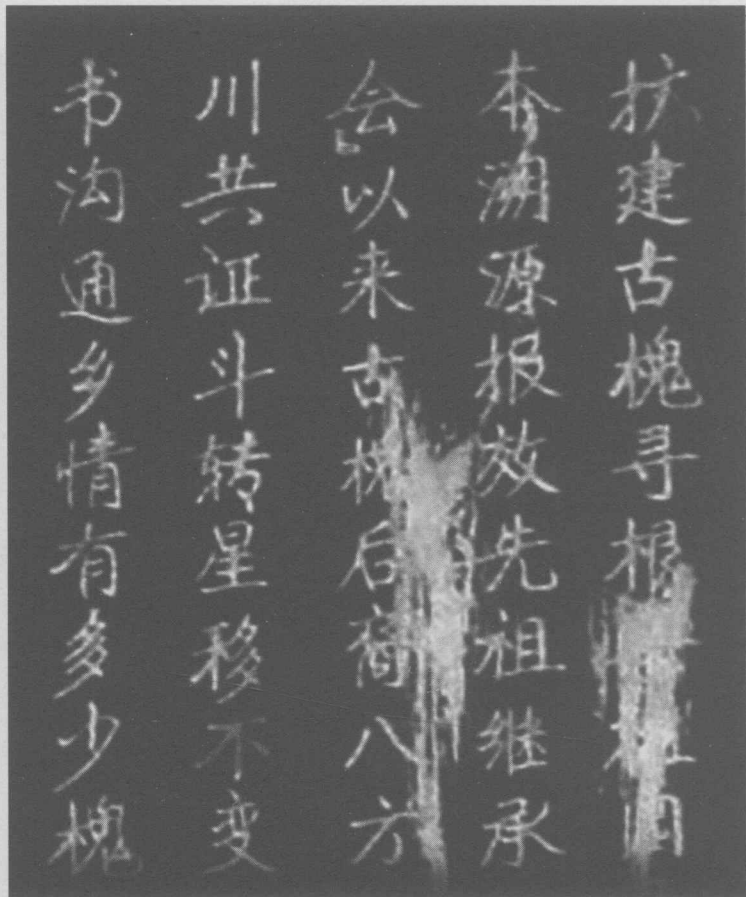 扩建古槐寻根
本溯源报效先祖继承
会以来古槐后裔八方
川共证斗转星移不变
书沟通乡情有多少槐